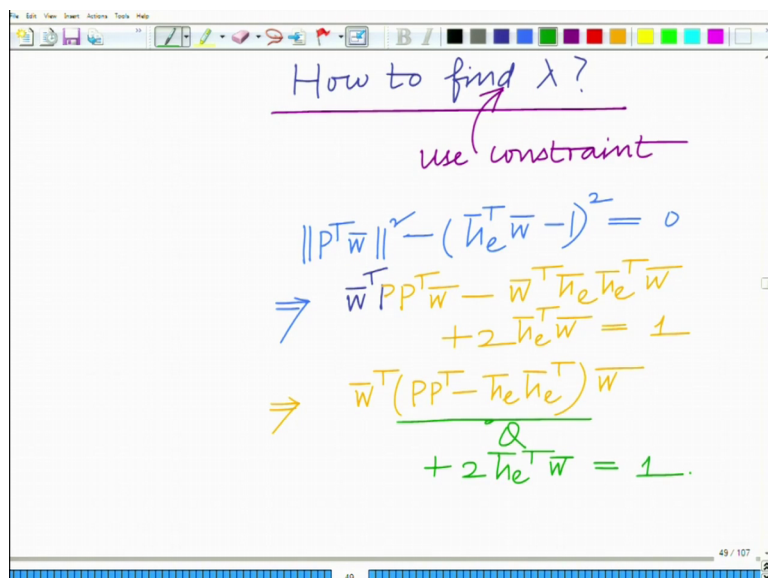 File Edit View Insert Actions Tools Help
B I
How to find λ?
use constraint
||Pᵀw̄||² - (h̄ₑᵀw̄ - 1)² = 0
⇒ w̄ᵀPPᵀw̄ - w̄ᵀh̄ₑh̄ₑᵀw̄
+ 2h̄ₑᵀw̄ = 1
⇒ w̄ᵀ(PPᵀ - h̄ₑh̄ₑᵀ)w̄
Q
+ 2h̄ₑᵀw̄ = 1.
49 / 107
49